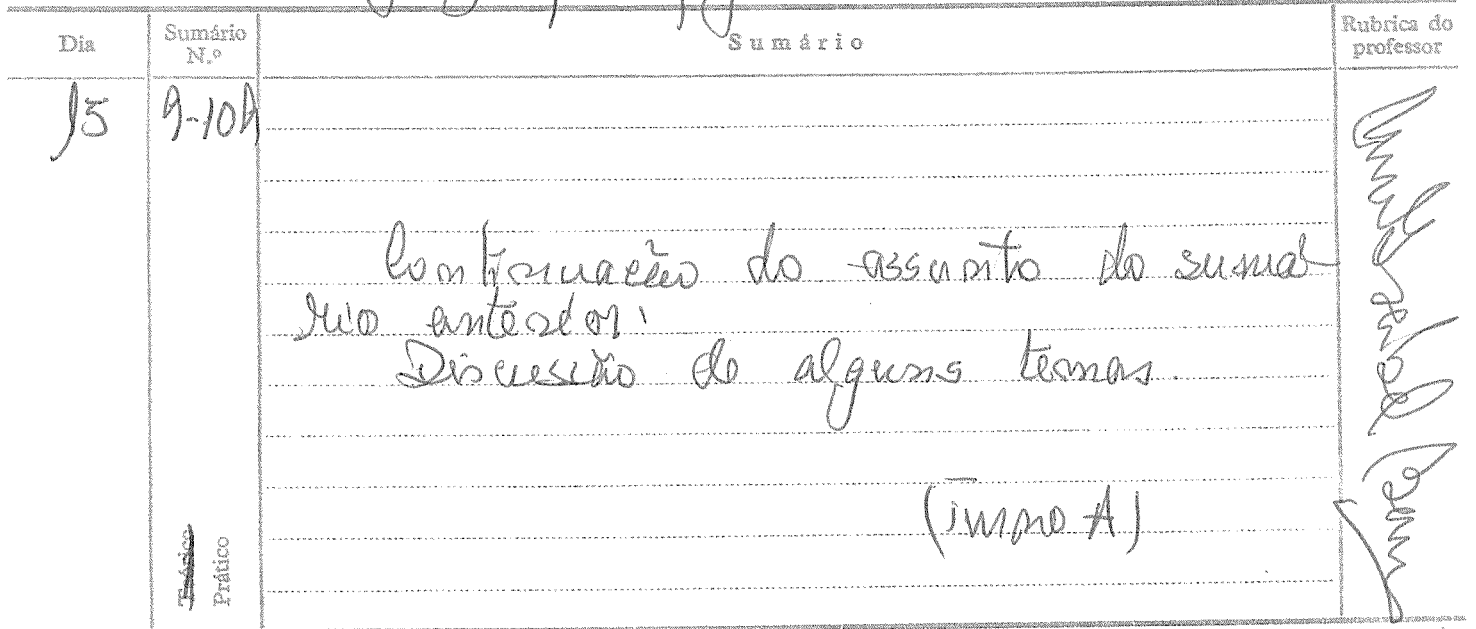 Dia
Sumário N.º
Sumário
Rubrica do professor
15
9-10h
Continuação do assunto do sumá-
rio anterior.
Discussão de alguns temas.
(Turno A)
Teórico
Prático